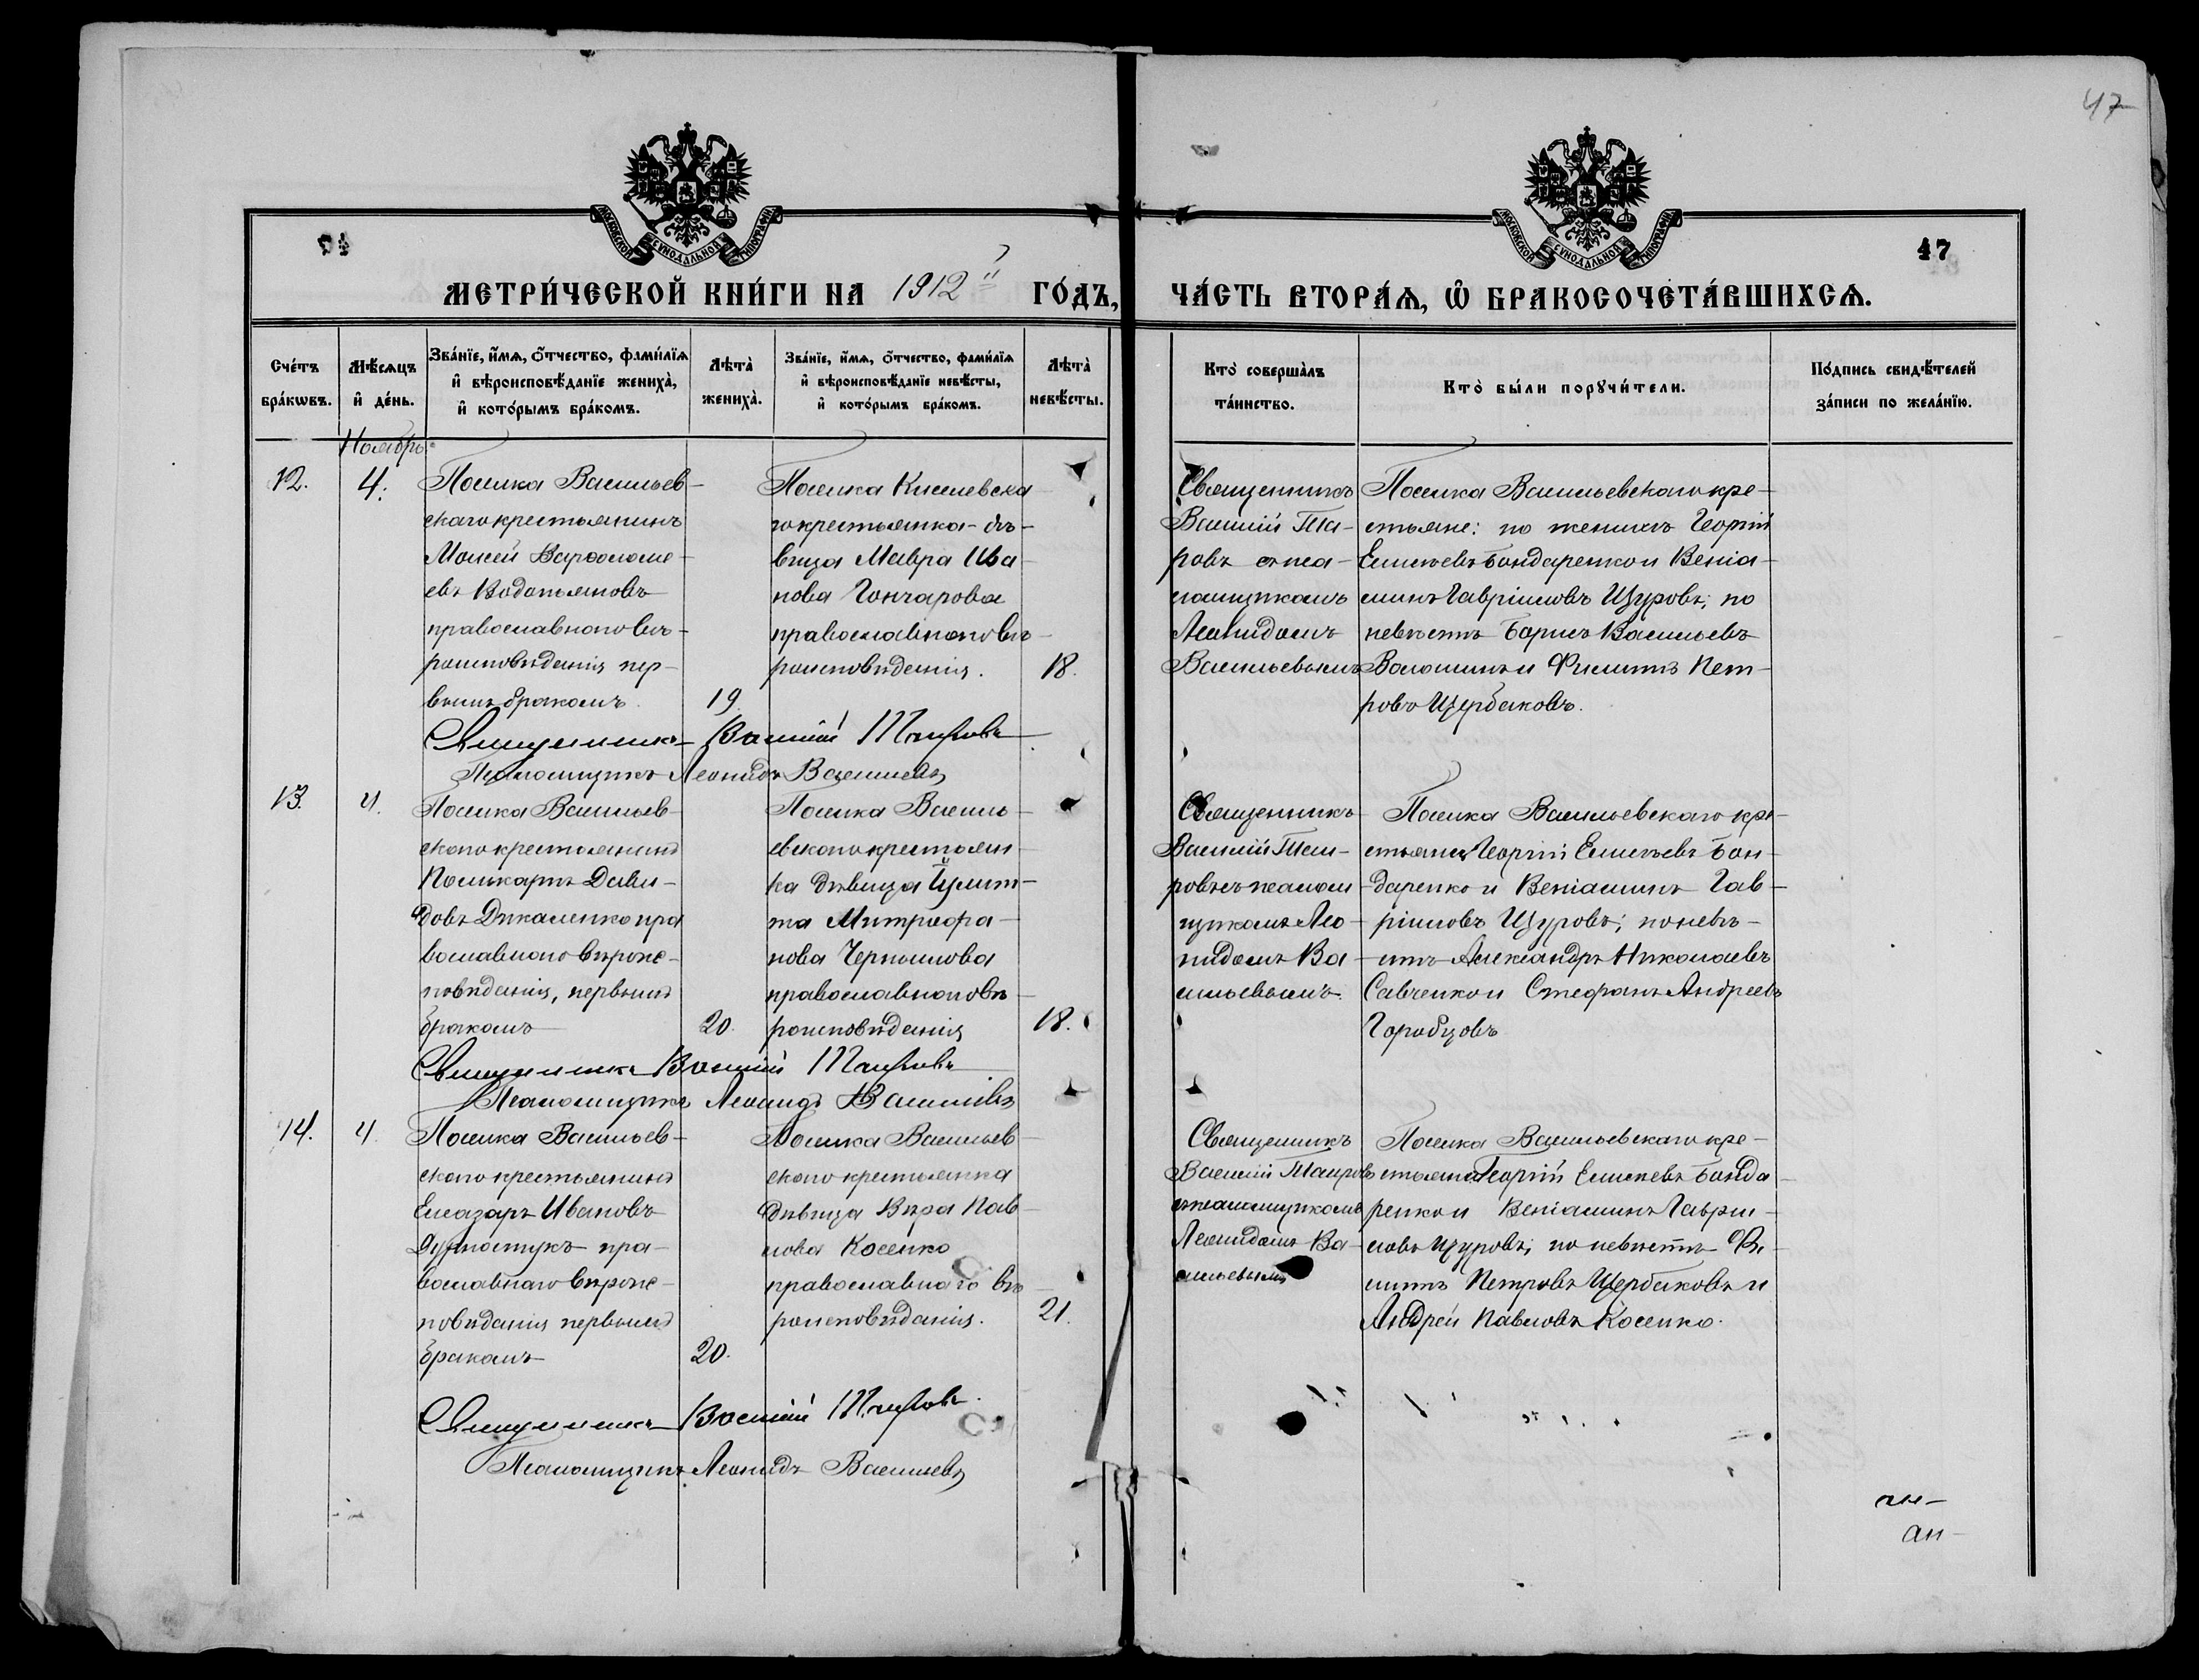 47
МОСКОВСКОЙ СѴНОДАЛЬНОЙ ТИПОГРАФІИ
МОСКОВСКОЙ СѴНОДАЛЬНОЙ ТИПОГРАФІИ
47
МЕТРИ́ЧЕСКОЙ КНИ́ГИ НА 1912 ГО́ДЪ,
ЧА́СТЬ ВТОРА́Ѧ, Ѡ҆ БРАКОСОЧЕТА́ВШИХСѦ.
Сче́тъ бра́кѡвъ.
Мѣ́сѧцъ и҆ де́нь.
Зва́нїе, и҆́мѧ, ѻ҆́тчество, фами́лїѧ
и҆ вѣроисповѣ́данїе жениха̀,
и҆ кото́рымъ бра́комъ.
Лѣта̀ жениха̀.
Зва́нїе, и҆́мѧ, ѻ҆́тчество, фами́лїѧ
и҆ вѣроисповѣ́данїе невѣ́сты,
и҆ кото́рымъ бра́комъ.
Лѣта̀ невѣ́сты.
Кто̀ соверша́лъ
та́инство.
Кто̀ бы́ли порꙋчи́тели.
По́дпись свидѣ́телей
за́писи по жела́нїю.
Ноябрь
12.
4.
Поселка Васильев-
скаго крестьянинъ
Моисей Варѳоломе-
евъ Водопьяновъ
православнаго вѣ-
роисповѣданія пер-
вымъ бракомъ.
19.
Поселка Киселевска
го крестьянка-дѣ-
вица Мавра Ива
нова Гончарова
православнаго вѣ-
роисповѣданія.
18.
Священникъ
Василій Таи-
ровъ съ пса-
ломщикомъ
Леонидомъ
Васильевымъ
Поселка Васильевскаго кре-
стьяне: по женихѣ Георгій
Елисѣевъ Бондаренко и Веніа-
минъ Гавріиловъ Щуровъ; по
невѣстѣ Борисъ Васильевъ
Волошинъ и Филиппъ Пет-
ровъ Щербаковъ.
Священникъ Василій Таировъ
Псаломщикъ Леонидъ Васильевъ
13.
4.
Поселка Васильев-
скаго крестьянинъ
Поликарпъ Дави-
довъ Дикаленко пра
вославнаго вѣроис-
повѣданія, первымъ
бракомъ
20.
Поселка Василь-
евскаго крестьян-
ка дѣвица Іулит-
та Митрофа-
нова Чернышова
православнаго вѣ-
роисповѣданія
18.
Священникъ
Василій Таи-
ровъ съ псалом-
щикомъ Лео-
нидомъ Ва-
сильевымъ.
Поселка Васильевскаго кре-
стьяне, Георгій Елисѣевъ Бон-
даренко и Веніаминъ Гав-
ріиловъ Щуровъ; по невѣ-
стѣ Александръ Николаевъ
Савченко и Стефанъ Андреевъ
Горобцовъ
Священникъ Василій Таировъ
Псаломщикъ Леонидъ Васильевъ
14.
4
Поселка Васильев-
скаго крестьянинъ
Елеазаръ Ивановъ
пра-
вославнаго вѣроис-
повѣданія первымъ
бракомъ
20.
Поселка Васильев-
скаго крестьянка
дѣвица Вѣра Пав-
лова Косенко
православнаго вѣ-
роисповѣданія.
21.
Священникъ
Василій Таировъ
съ псаломщикомъ
Леонидомъ Ва-
сильевымъ
Поселка Васильевскаго кре-
стьяне Георгій Елисѣевъ Бонда-
ренко и Веніаминъ Гаврии-
ловъ Щуровъ; по невѣстѣ Фи-
липпъ Петровъ Щербаковъ и
Андрей Павловъ Косенко.
Священникъ Василій Таировъ.
Псаломщикъ Леонидъ Васильевъ